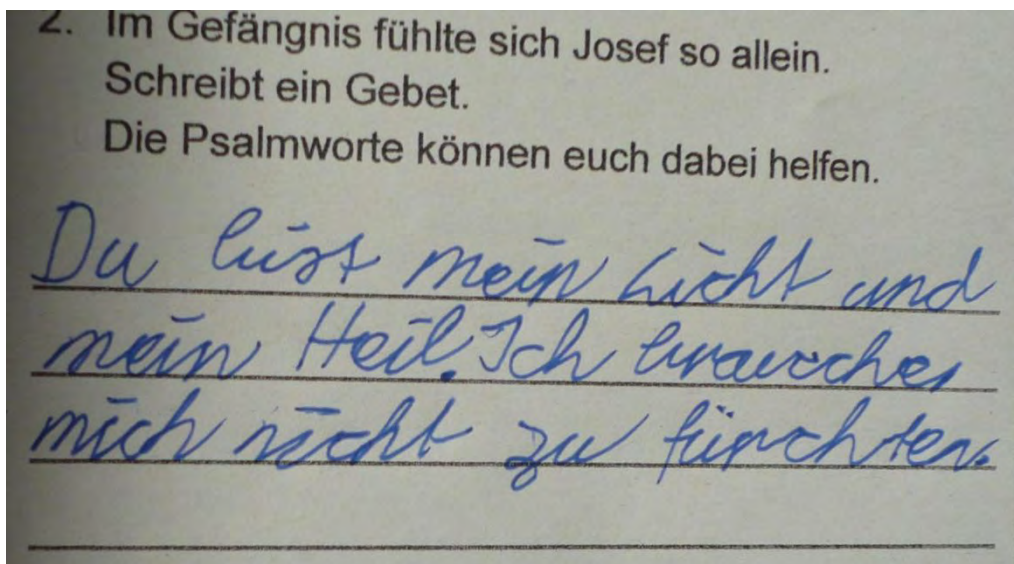 2. Im Gefängnis fühlte sich Josef so allein.
Schreibt ein Gebet.
Die Psalmworte können euch dabei helfen.
Du bist mein Licht und
mein Heil. Ich brauche
mich nicht zu fürchten.